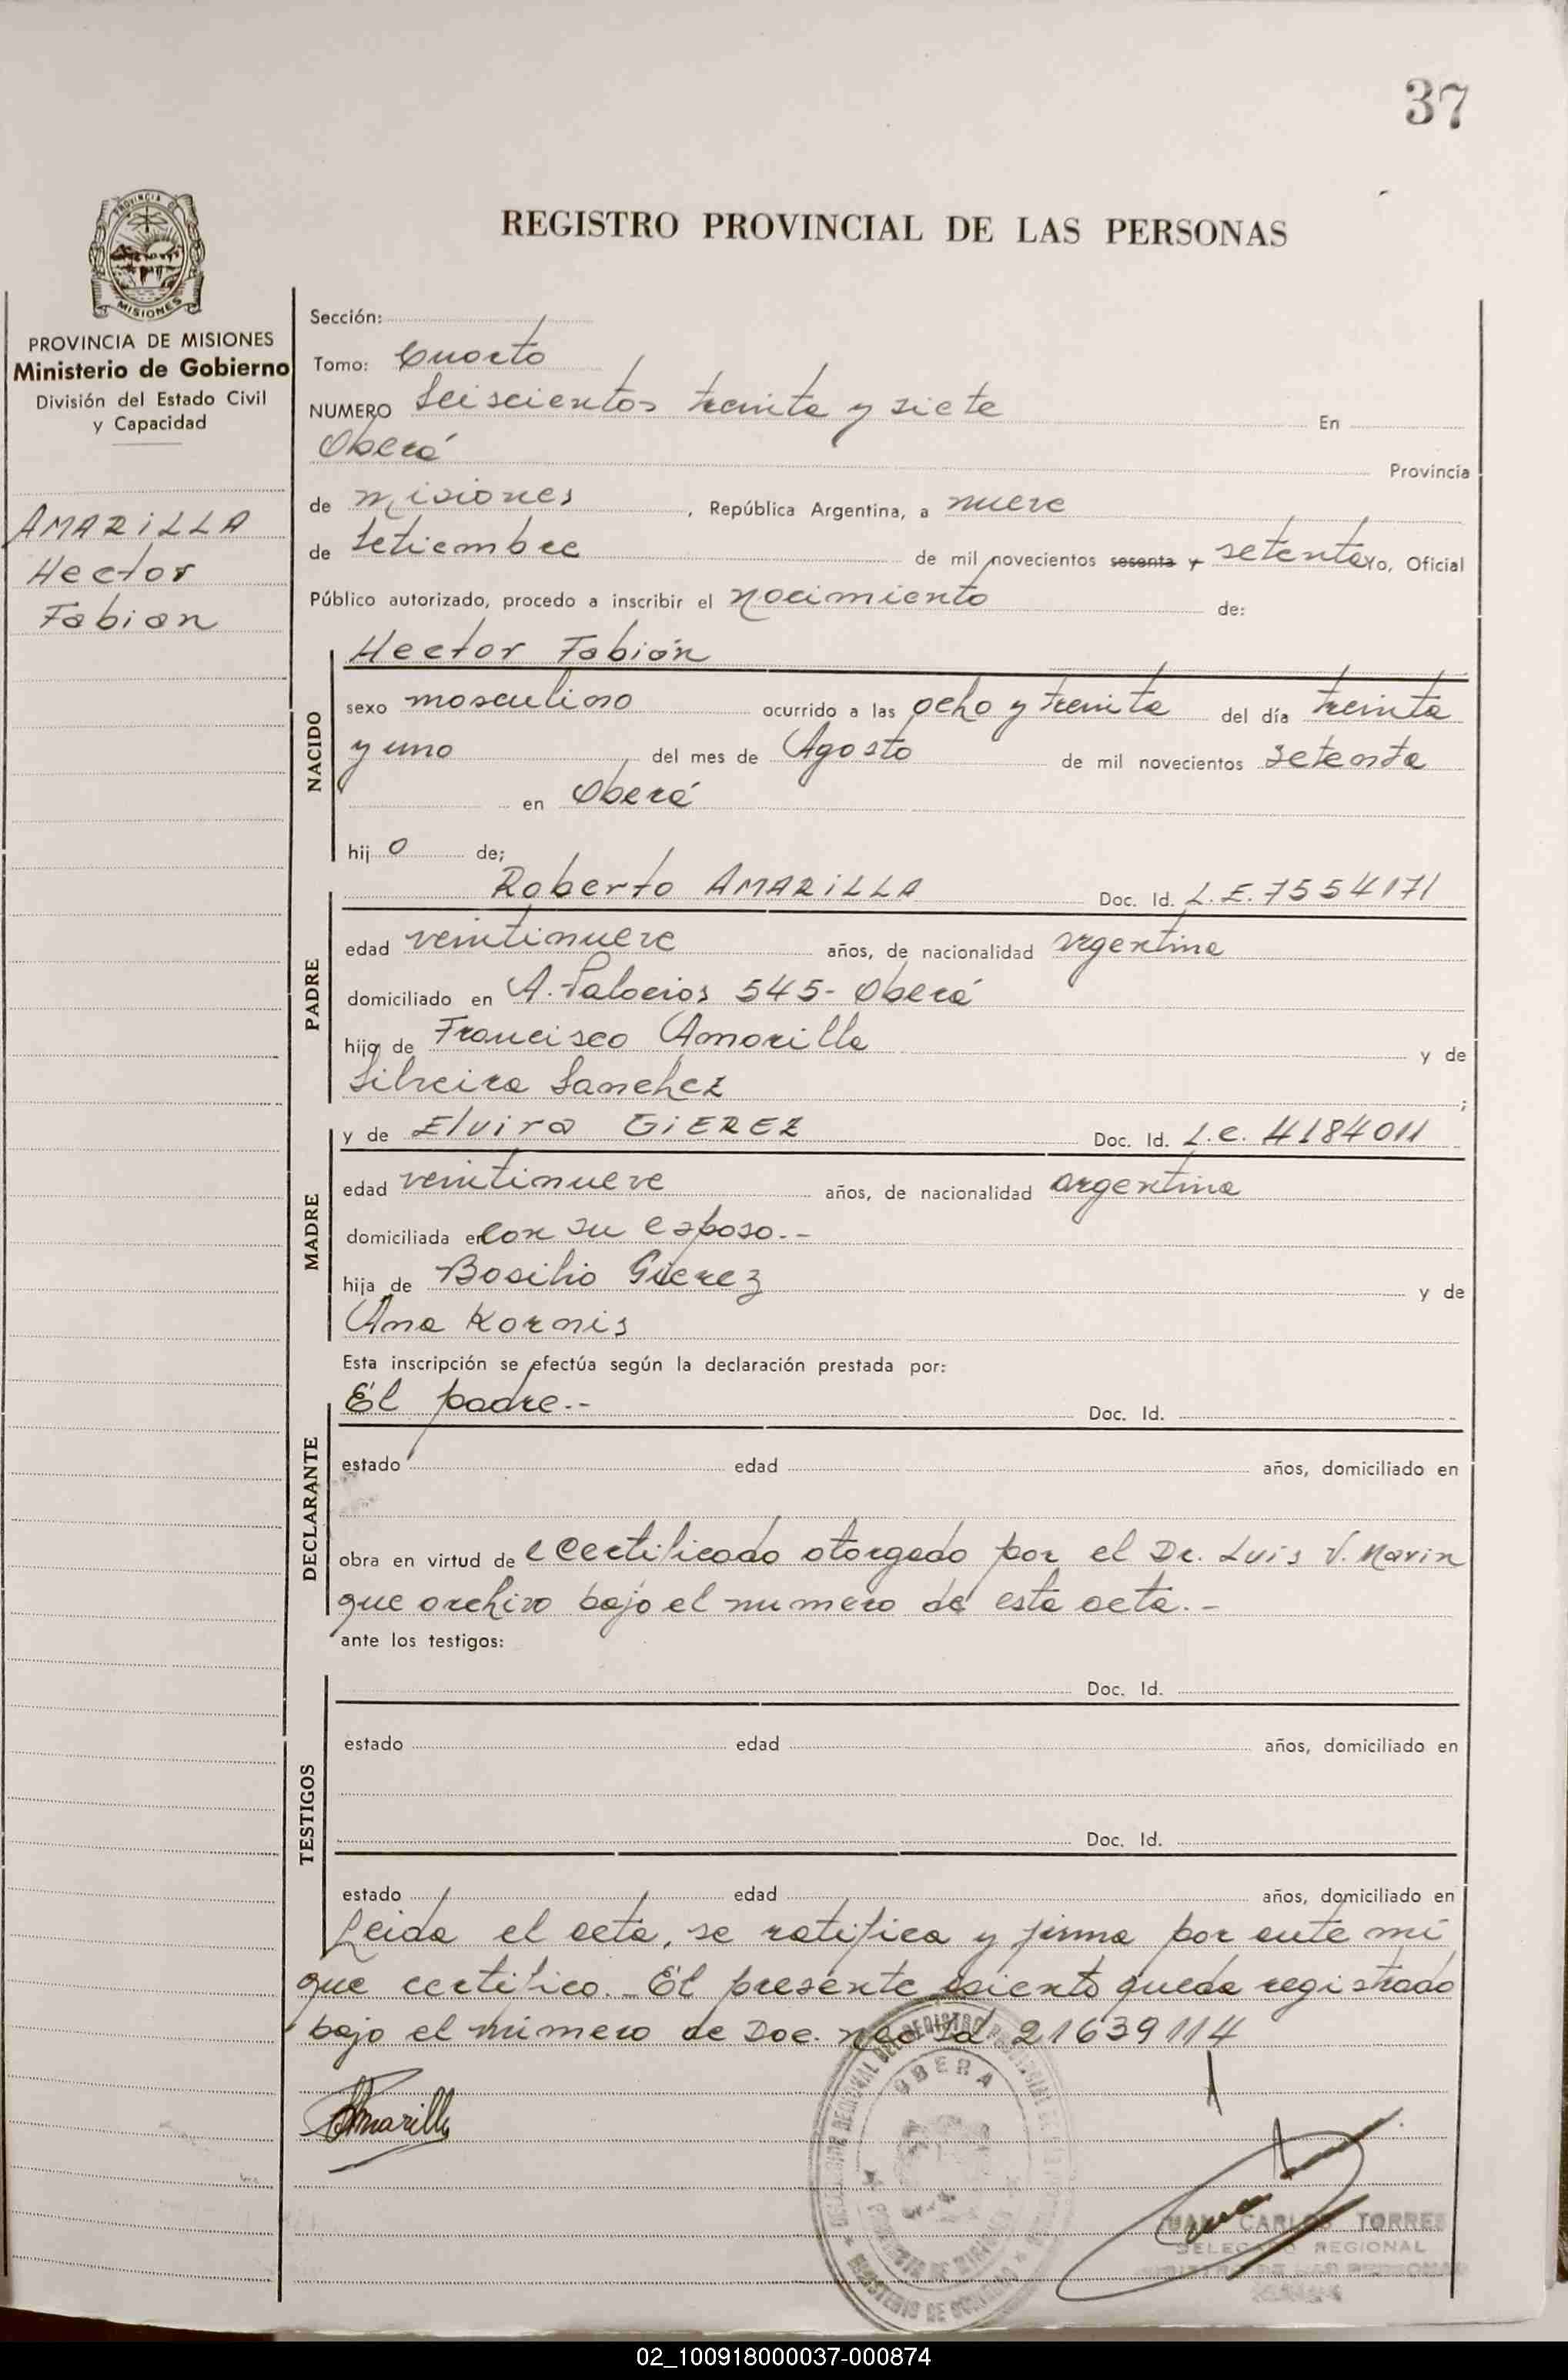 37
REGISTRO PROVINCIAL DE LAS PERSONAS
PROVINCIA DE
MISIONES
PROVINCIA DE MISIONES
Ministerio de Gobierno
División del Estado Civil
y Capacidad
AMARILLA
Hector
Fabian
Sección:
Tomo: Cuarto
NUMERO Seiscientos treinta y siete En
Oberá Provincia
de misiones, República Argentina, a nueve
de Setiembre de mil novecientos sesenta y setenta Yo, Oficial
Público autorizado, procedo a inscribir el nacimiento de:
NACIDO
Hector Fabián
sexo masculino ocurrido a las ocho y treinta del día treinta
y uno del mes de Agosto de mil novecientos setenta
en Oberá
hijo de;
PADRE
Roberto AMARILLA Doc. Id. L.E. 7554171
edad veintinueve años, de nacionalidad argentina
domiciliado en A. Palacios 545- Oberá
hijo de Francisco Amarilla y de
Silveira Sanchez ;
MADRE
y de Elvira GIEREZ Doc. Id. L.C. 4184011
edad veintinueve años, de nacionalidad argentina
domiciliada en con su esposo.-
hija de Basilio Gierez y de
Ana Kornis
Esta inscripción se efectúa según la declaración prestada por:
DECLARANTE
El padre.- Doc. Id.
estado edad años, domiciliado en
obra en virtud de certificado otorgado por el Dr. Luis V. Marin
que archivo bajo el numero de esta acta.-
ante los testigos:
TESTIGOS
Doc. Id.
estado edad años, domiciliado en
Doc. Id.
estado edad años, domiciliado en
Leida el acta, se ratifica y firma por ante mi
que certifico.- El presente asiento queda registrado
bajo el número de Doc. Nac Id 21639114
Amarilla
OBERA
JUAN CARLOS TORRES
DELEGADO REGIONAL
02_100918000037-000874